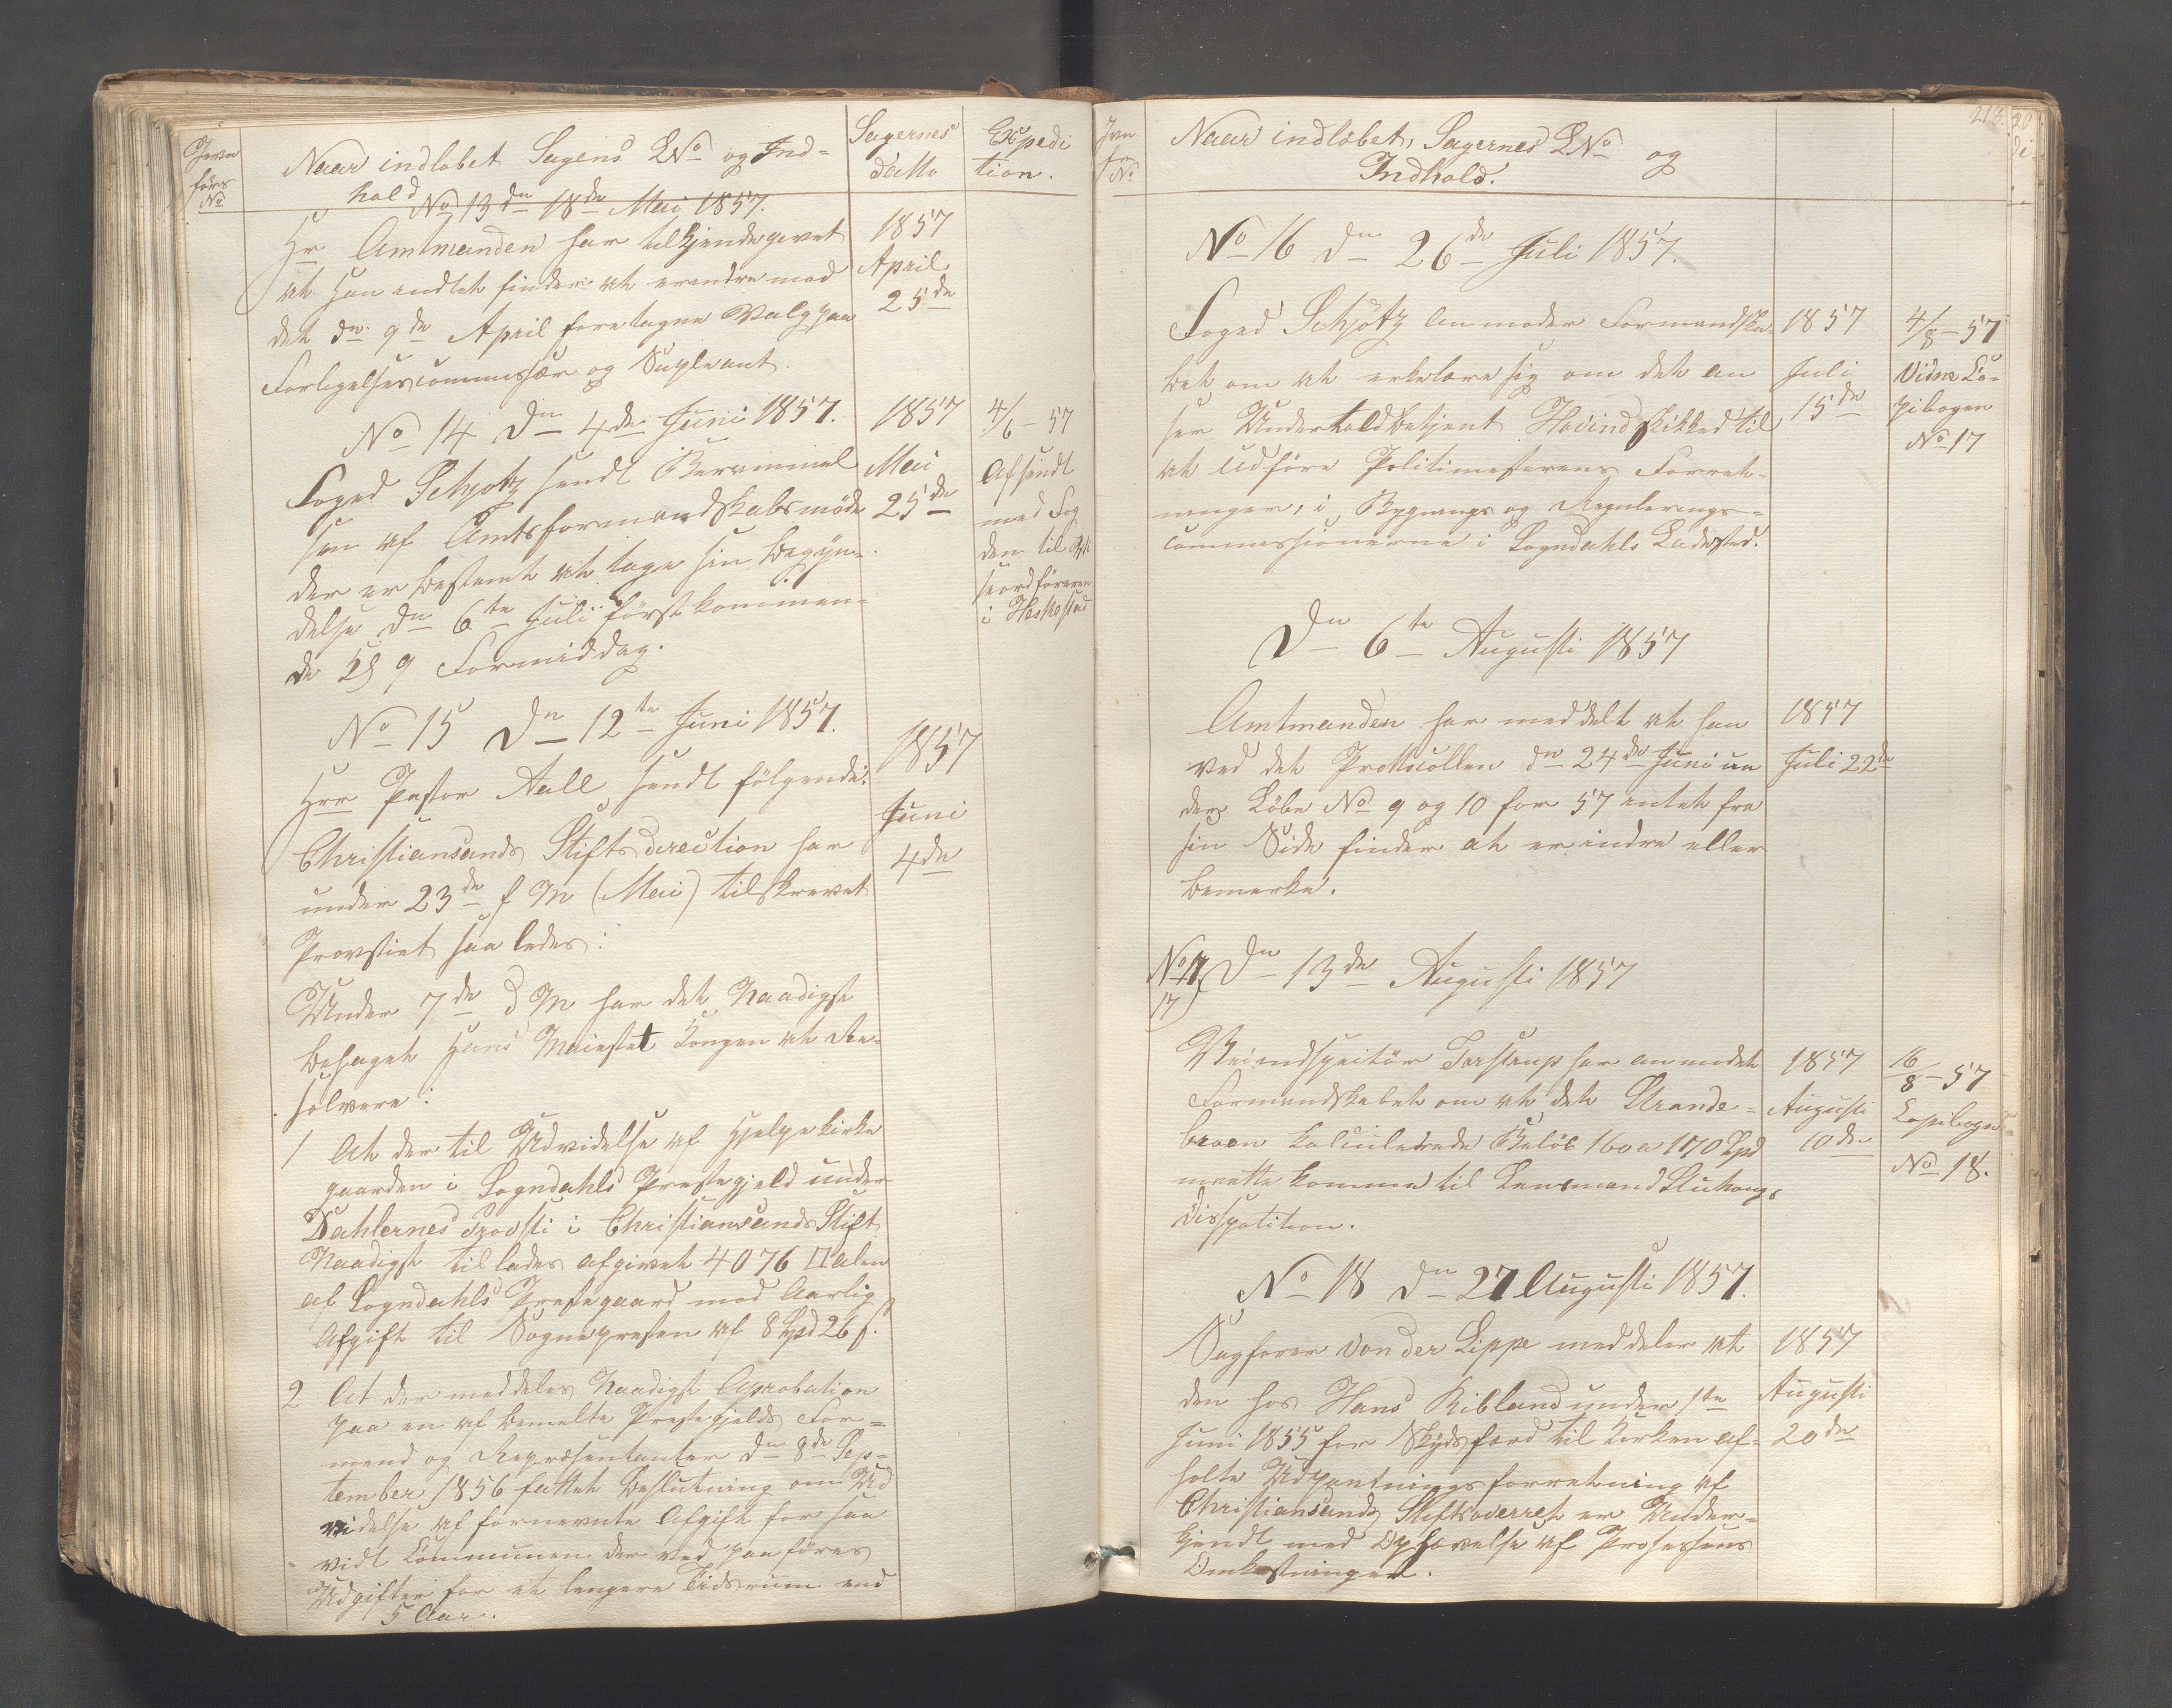 Jevn
førs
No
Naar indløbet Sagens LNo og Ind-
hold
Sagernes
datto
Expedi
tion.
No 13 dn 18de Mai 1857.
Hr Amtmanden har tilkjendegivet
at han indtet finder at erindre mod
det dn 9de April foretagne Valg paa
Forligelsescommissær og Supleant.
1857
April
25de
No 14 Dn 4de Juni 1857.
Foged Schjøtz sendt Berammel
sen af Amtsformandskabsmøde
der er bestemt at tage sin Begyn-
delse dn 6te Juli førstkommen-
de Kl 9 Formiddag.
1857
Mai
25de
4/6 - 57
Afsendt
med Fog
den til
ordføreren
i Heskestad
No 15 Dn 12te Juni 1857.
Hrr Pastor Aall sendt følgende:
Christiansands Stiftsdirection har
under 23de f M (Mai) tilskrevet
Provstiet saaledes:
1857
Juni
4de
Under 7de d M har det Naadigst
behaget Hans Maiestet Kongen at Re-
solvere:
1 At der til Udvidelse af Hjelpekirke
gaarden i Sogndahls Prestegjeld under
Dahlernes Provsti i Christiansands Stift
Naadigst tillades afgivet 4076 □ Alen
af Sogndahls Prestegaard mod Aarlig
Afgift til Sognepresten af 8 Spd 26 s.
2 At der meddeles Naadigst Aprobation
paa en af bemelte Prestegjelds For-
mend og Repræsentanter dn 8de Sep-
tember 1856 fattet Beslutning om Ud
videlse af fornevnte Afgift for saa
vidt Communen derved paaføres
Udgifter for et lengere Tidsrum end
5 Aar.
Jvn
før
No
Naar indløbet, Sagernes LNo og
Indhold.
218
No 16 dn 26de Juli 1857.
Foged Schjøtz anmoder Formandska
bet om at erkelære sig om det an
ser Undertoldbetjent Hovind skikked til
at udføre Politimesterens Forret-
ninger, i Bygnings og Regulerings-
commissionerne i Sogndahls Ladested.
1857
Juli
15de
4/8 - 57
Vidne Co-
pibogen
No 17
Dn 6te Augusti 1857
Amtmanden har meddelt at han
ved det Prottocollen dn 24de Juni un
der Løbe No 9 og 10 for 57 intet fra
sin Side finder at erindre eller
bemerke.
1857
Juli 22de
No 17 Dn 13de Augusti 1857
17)
Veiindspeitør Torstrup har anmodet
Formandskabet om at det Strande-
broen kalculerede Beløb 160 a 170 Spd
maatte komme til Lensmand
Disspotition.
1857
Augusti
10de
16/8 - 57
Copibogen
No 18.
No 18 dn 27 Augusti 1857.
Sagfører Von der Lippe meddeler at
den hos Hans Kibland under 1te
Juni 1855 for Skydsferd til Kirken af-
holte Udpantningsforretning af
Christiansands Stiftsoverret er Under-
kjendt med Ophævelse af Prosessens
Omkostninger.
1857
Augusti
20de